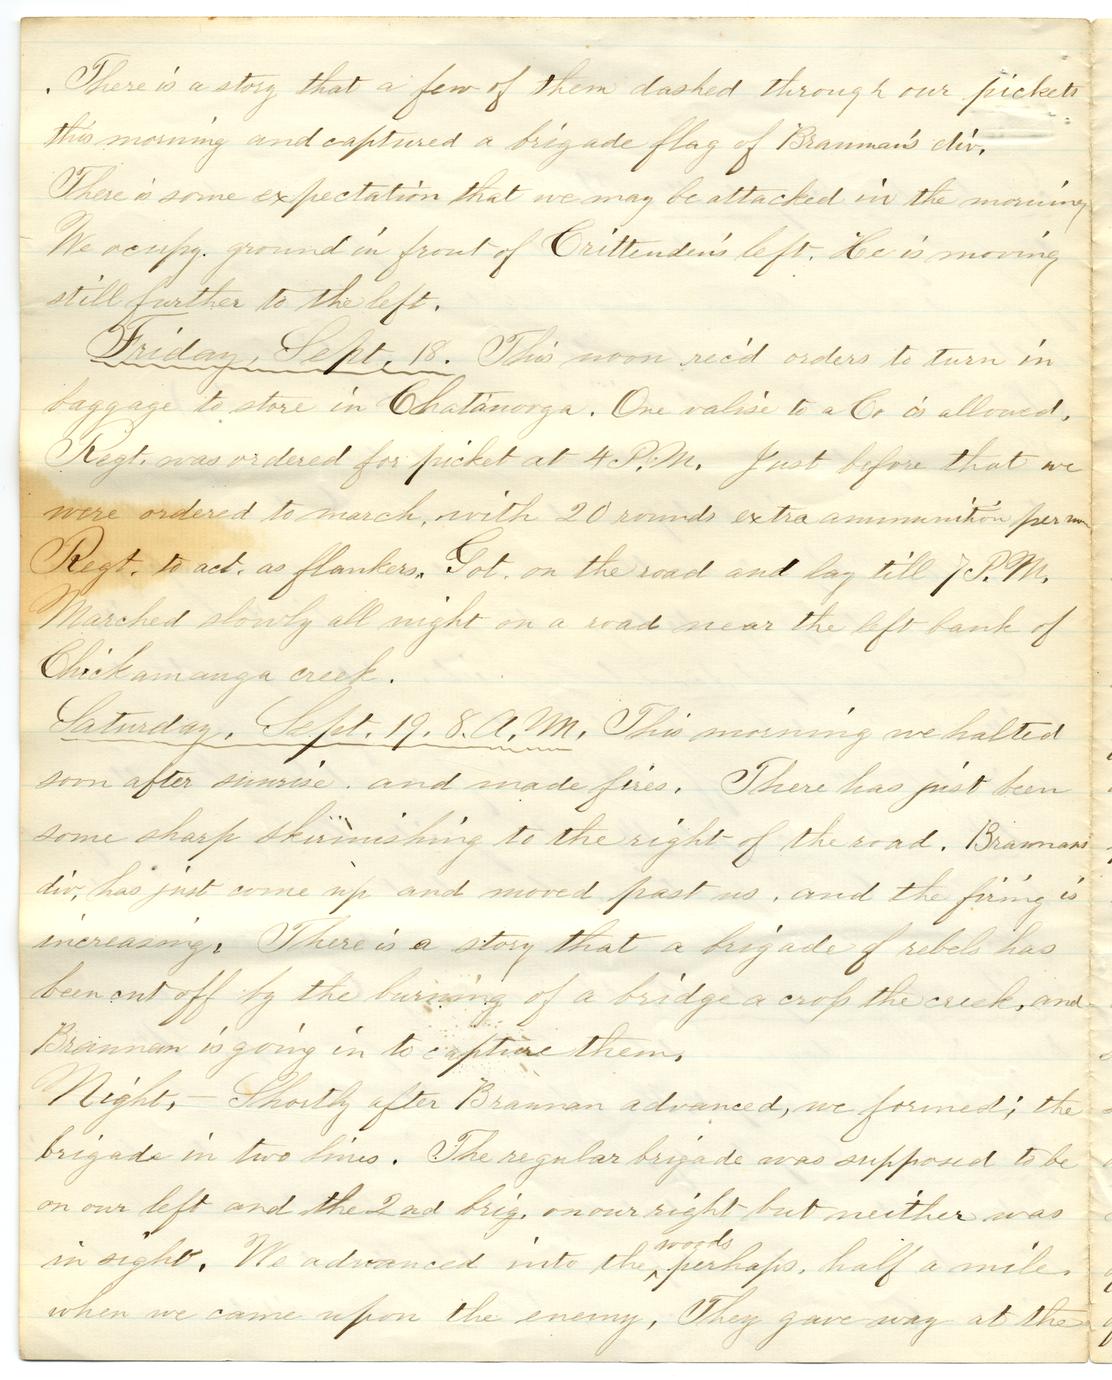 . There is a story that a few of them dashed through our pickets
this morning and captured a brigade flag of Brannan's div.
There is some expectation that we may be attacked in the morning
We ocupy. ground in front of Crittenden's left. He is moving
still further to the left.
Friday, Sept. 18. This noon rec'd orders to turn in
baggage to store in Chatanooga. One valise to a Co is allowed.
Regt. was ordered for picket at 4 P.M. Just before that we
were ordered to march, with 20 rounds extra ammunition per man
Regt. to act. as flankers. Got. on the road and lay till 7 P.M.
Marched slowly all night on a road near the left bank of
Chickamauga creek.
Saturday, Sept. 19. 8. A.M. This morning we halted
soon after sunrise. and made fires. There has just been
some sharp skirmishing to the right of the road. Brannans
div. has just come up and moved past us. and the firing is
increasing. There is a story that a brigade of rebels has
been cut off by the burning of a bridge across the creek, and
Brannan is going in to capture them.
Night. — Shortly after Brannan advanced, we formed; the
brigade in two lines. The regular brigade was supposed to be
on our left and the 2nd brig. on our right but neither was
in sight. We advanced into the woods perhaps. half a mile.
when we came upon the enemy. They gave way at the